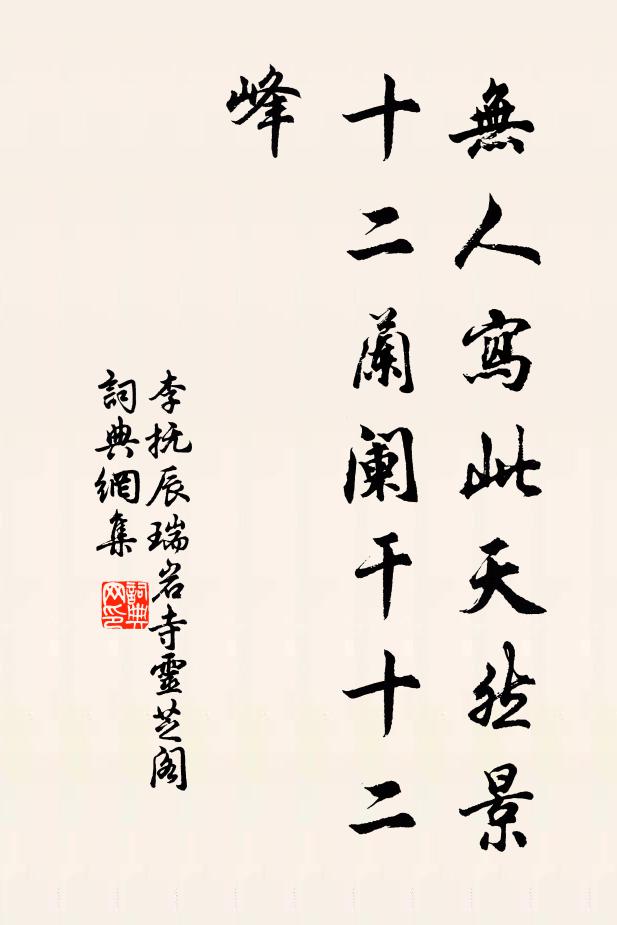 無人寫此天然景
十二蘭闌干十二
峰
李抚辰瑞岩寺靈芝閣
詞典網集
詞典
网印